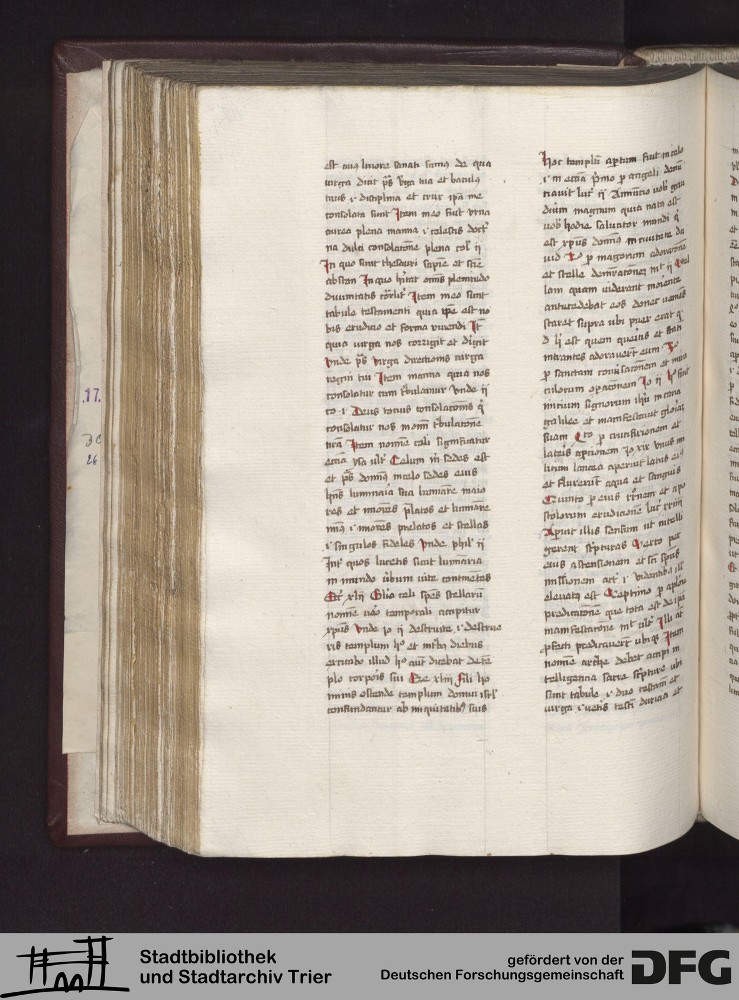 est cuius livore sanati sumus de qua
virga dicit ps Virga tua et baculus
tuus et disciplina et crux ipsa me
consolata sunt Item in eo fuit urna
aurea plena manna i celestis doctri
na dulci consolatione plena col ii
In quo sunt thesauri sapie et scie
absconditi In quo habitat omnis plenitudo
divinitatis Item in eo sunt
tabule testamenti quia ipse est no
bis eruditio et forma vivendi It
quia virga nos corrigit et dirigit
Unde ps Virga directionis virga
regni tui Item manna quia nos
consolatur cum tribulamur Unde ii
co i Deus totius consolationis qui
consolatur nos in omni tribulatione
nostra Item nomine celi significatur
ecclesia ysa ult Celum mihi sedes est
et ps dominus in celo sedes eius
habens luminaria sua luminare maio
res et minores prelatos et luminare
minus i minores prelatos et stellas
i singulos fideles Unde phil ii
Inter quos lucetis sicut luminaria
in mundo verbum vite continentes
Ecc xliii Gloria celi species stellarum
nomine vero temporali accipitur
xpus Unde Jo ii destruite i destrue
ris templum hoc et in tribus diebus
excitabo illud hoc autem dicebat de tem
plo corporis sui Eze xliii Fili ho
minis ostende templum domui isrl
confundantur ab iniquitatibus suis
Hoc templum apertum fuit in celo
i in ecclesia Primo per angeli denun
tiationem luc ii Annuncio vobis gau
dium magnum quia natus est
vobis hodie salvator mundi qui
est xpus dominus in civitate da
vid 2o per magorum adorationem
et stelle demonstrationem mt ii Stel
lam quam viderant in oriente
antecedebat eos donec veniens
staret supra ubi puer erat q
d hic est quem queritis et stati
intrantes adoraverunt eum 3o
per sanctam conversationem et mira
culorum operationem Jo ii Hoc fecit
initium signorum ihus in cana
galilee et manifestavit gloriam
suam Quarto per crucifixionem et
lateris apertionem Jo xix unus mi
litum lancea aperuit latus eius
et fluxerunt aqua et sanguis
Quinto per eius resurrectionem et apo
stolorum eruditionem luc xxiiii
Aperuit illis sensum ut intelli
gerent scripturas Sexto per
eius ascensionem et sancti spiritus
missionem act i Videntibus illis
elevatus est Septimo per aplorum
predicationem que tota est de ipsa
manifestatione mr ult Illi autem
profecti predicaverunt ubique Item
nomine arche debet accipi in
telligencia sacre scripture ubi
sunt tabule i duo testamenta et
virga i veteris testi duricia et
Stadtbibliothek
und Stadtarchiv Trier
gefördert von der
Deutschen Forschungsgemeinschaft
DFG